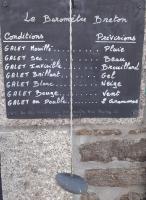 Le Baromètre Breton
Conditions Prévisions
GALET Mouillé......... Pluie
GALET Sec......... Beau
GALET Invisible....... Brouillard
GALET Brillant....... Gel
GALET Blanc......... Neige
GALET Bouge......... Vent
GALET en Double.....